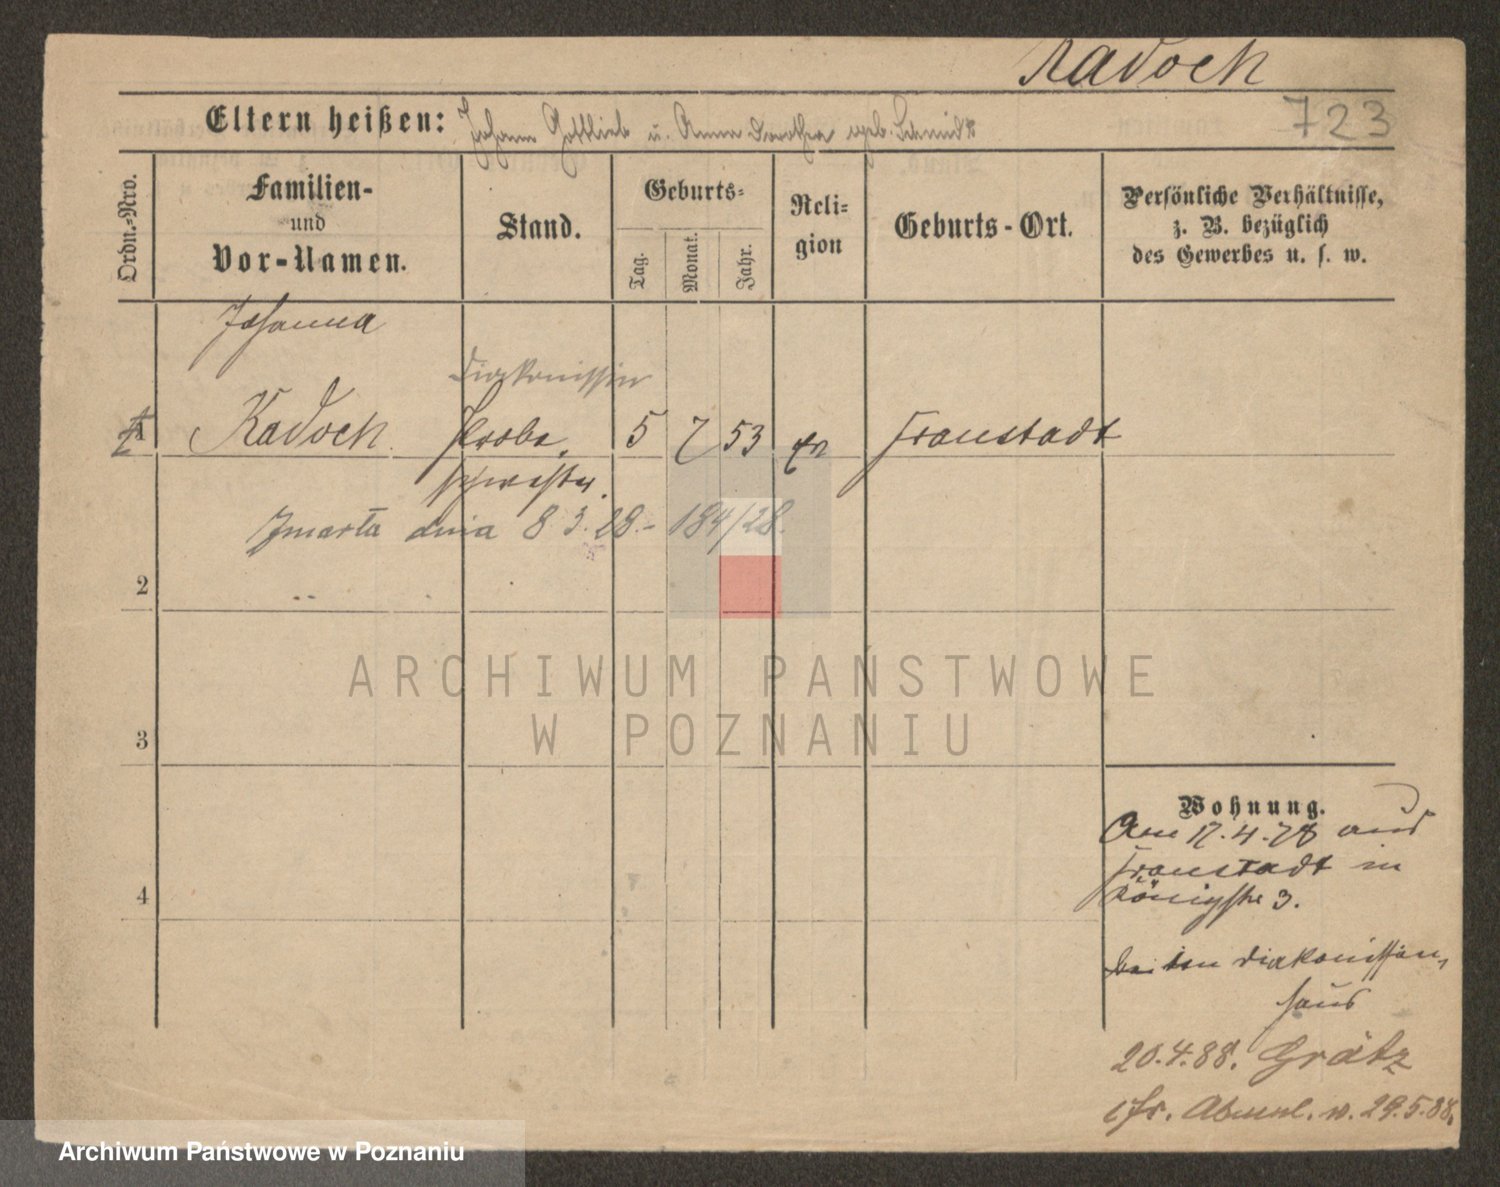 Kadoch
723
Eltern heißen: Johann Gottlieb u. Anna Dorothea geb. Schmidt
Ordn.-Nro.
Familien-
und
Vor-Namen.
Stand.
Geburts-
Tag.
Monat.
Jahr.
Reli-
gion
Geburts-Ort.
Persönliche Verhältnisse,
z. B. bezüglich
des Gewerbes u. s. w.
Johanna
Diakonissin
1 Kadoch Probe 5 7 53 ev Fraustadt
schwester.
Zmarła dnia 8 3. 28.- 184/28.
2
3
4
ARCHIWUM PAŃSTWOWE
W POZNANIU
Wohnung.
Am 17.4.78 aus
Fraustadt in
Königstr 3.
bei den Diakonissen-
haus
20.4.88. Grätz
lfr. Abmel. v. 29.5.88.
Archiwum Państwowe w Poznaniu